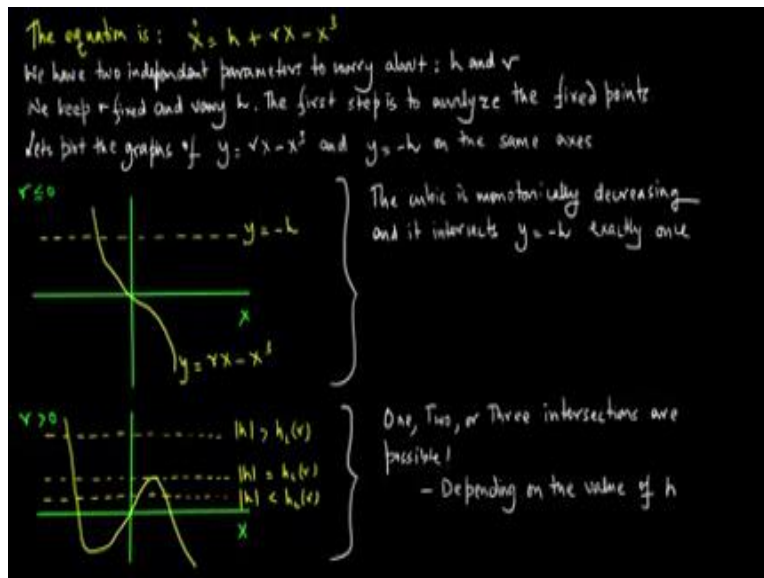 The equation is : ẋ = h + rx - x³
We have two independent parameters to worry about : h and r
We keep r fixed and vary h. The first step is to analyze the fixed points
Lets plot the graphs of y = rx - x³ and y = -h on the same axes
r ≤ 0
y = -h
X
y = rx - x³
The cubic is monotonically decreasing
and it intersects y = -h exactly once
r > 0
|h| > h꜀(r)
|h| = h꜀(r)
|h| < h꜀(r)
X
One, Two, or Three intersections are
possible!
- Depending on the value of h